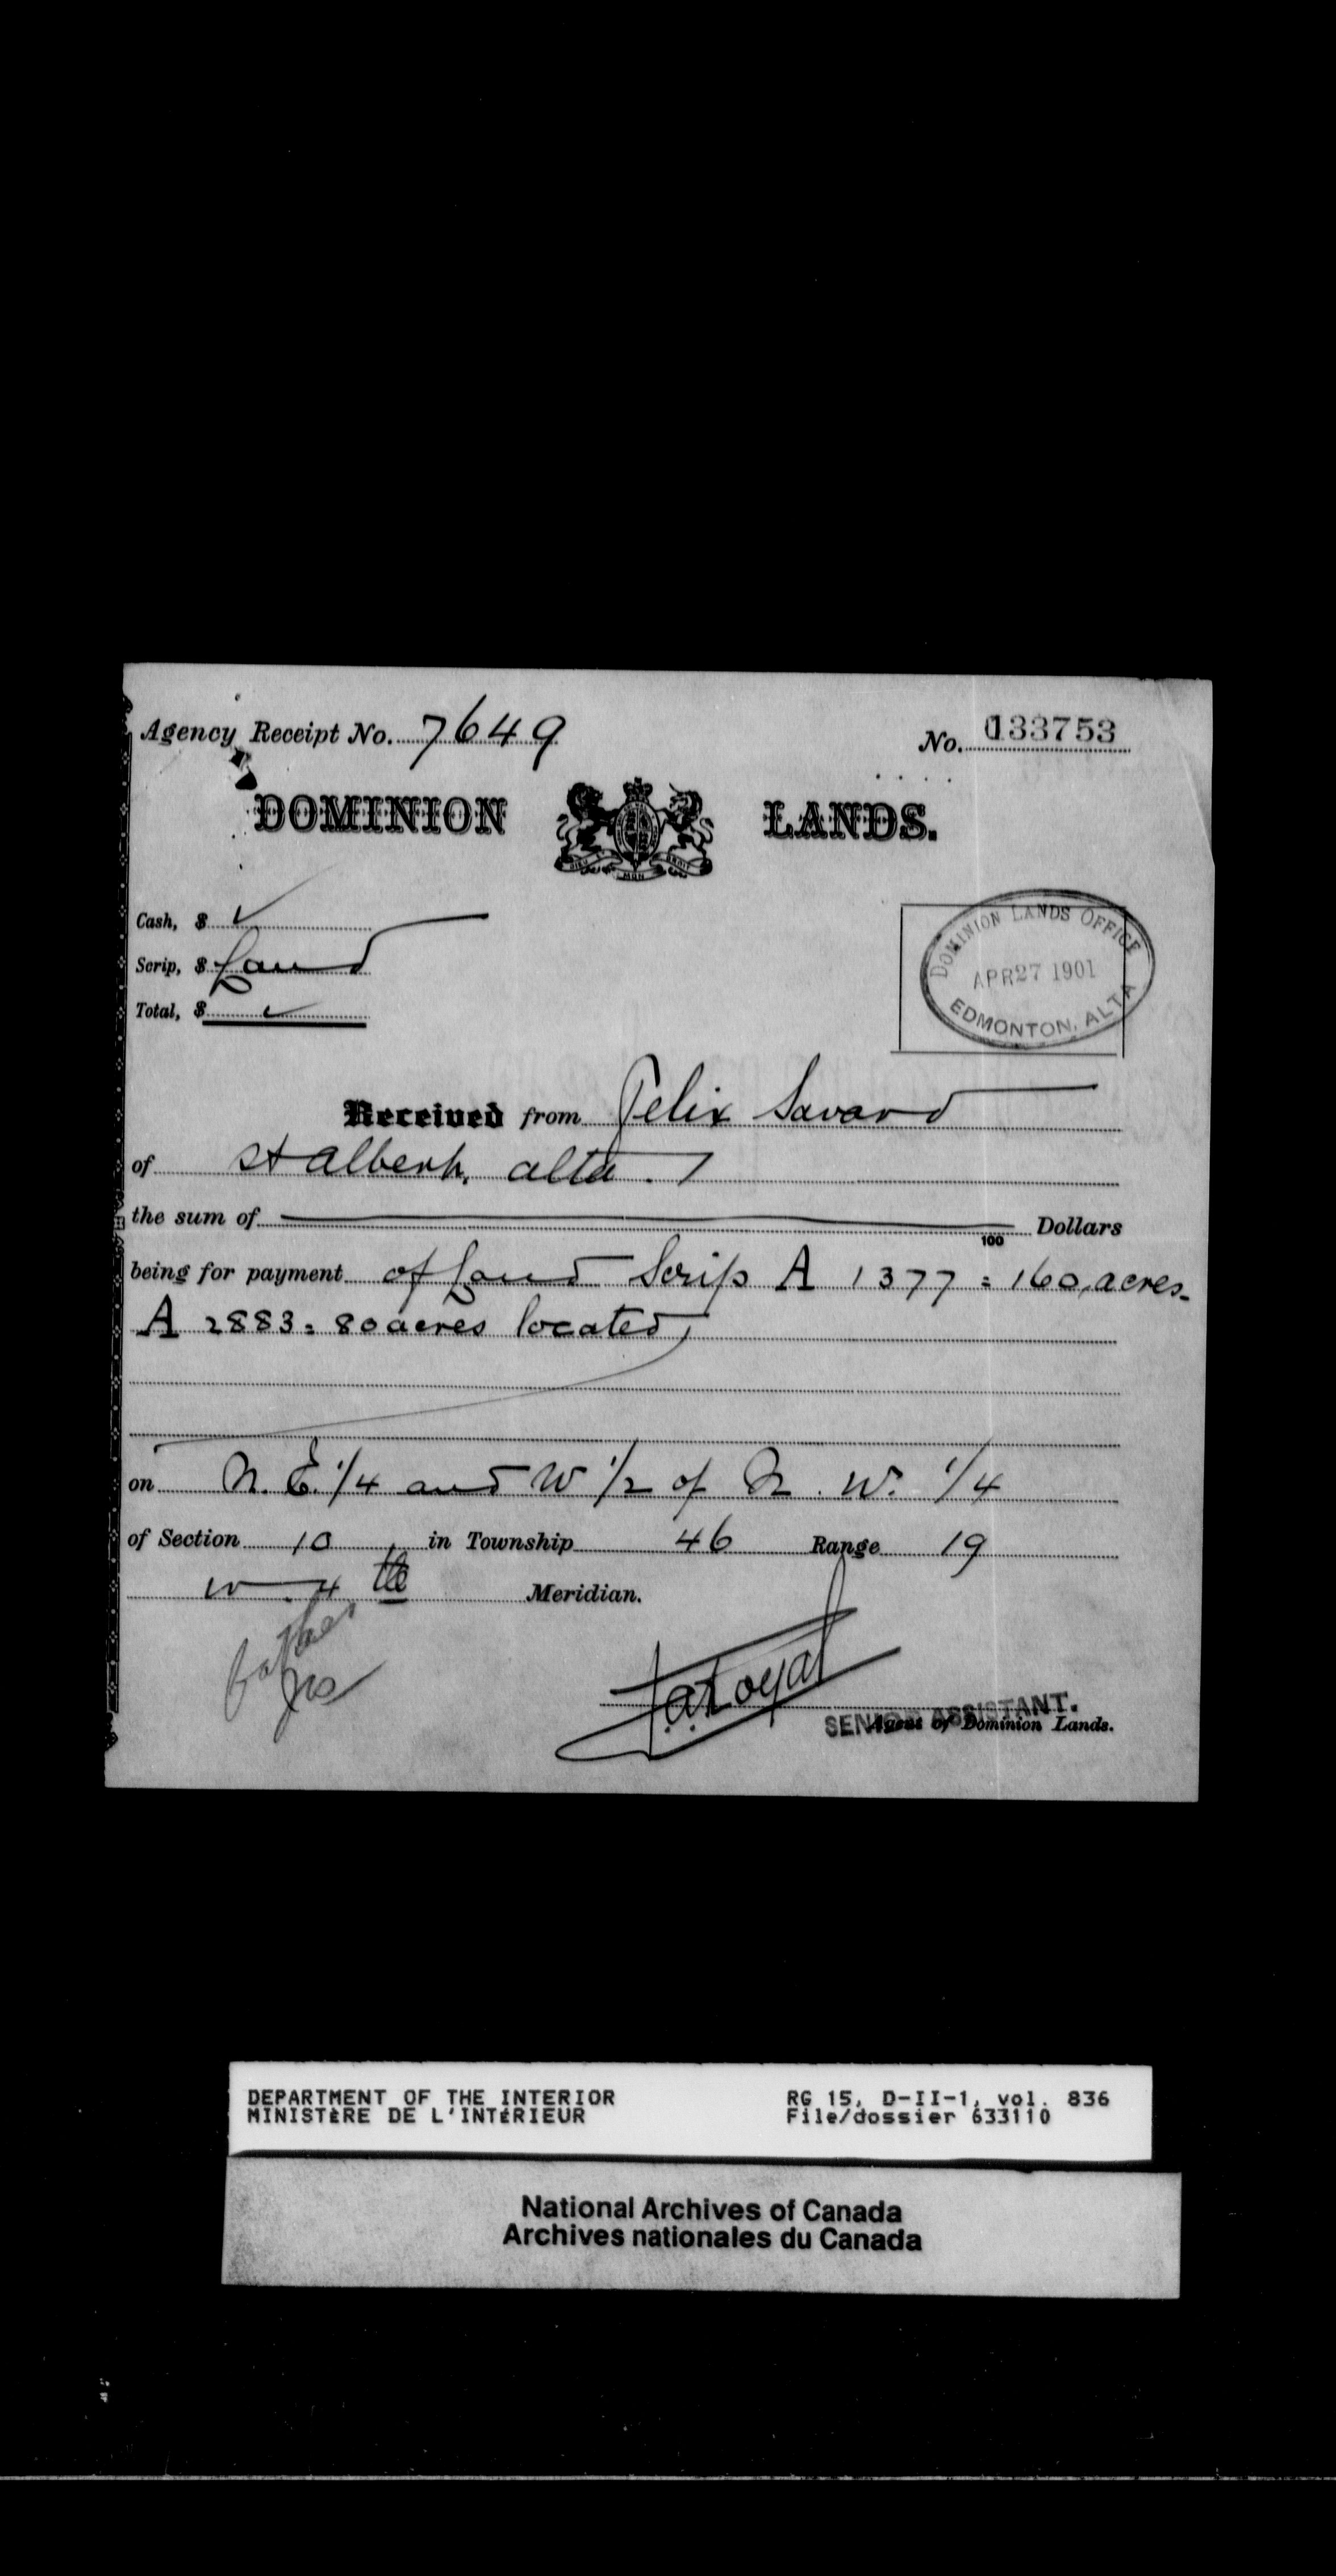 Agency Receipt No. 7649
No. 133753
DOMINION LANDS.
DIEU ET MON DROIT
Cash, $
Scrip, $ Land
Total, $
DOMINION LANDS OFFICE
APR 27 1901
EDMONTON, ALTA
Received from Felix Savard
of St Albert, alta.
the sum of Dollars
100
being for payment of Land Scrip A 1377 = 160 acres-
A 2883 = 80 acres located
on N. E. 1/4 and W 1/2 of N. W. 1/4
of Section 10 in Township 46 Range 19
W 4 th Meridian.
SENIOR ASSISTANT.
Agent of Dominion Lands.
DEPARTMENT OF THE INTERIOR
MINISTÈRE DE L'INTÉRIEUR
RG 15, D-II-1, vol. 836
File/dossier 633110
National Archives of Canada
Archives nationales du Canada